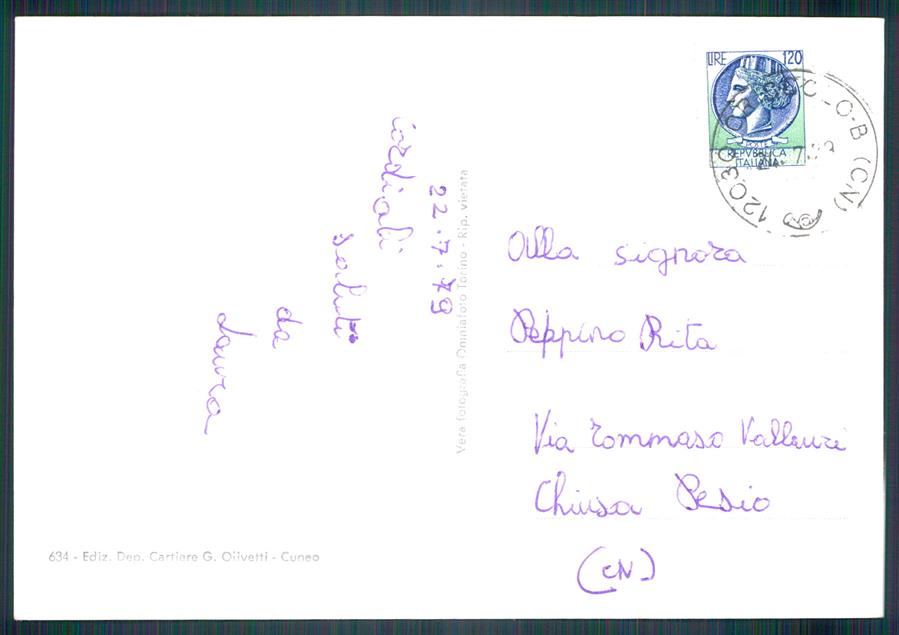 22.7.79
Cordiali
saluti
da
Laura
Vera fotografia Omniafoto Torino - Rip. vietata
634 - Ediz. Dep. Cartiere G. Olivetti - Cuneo
LIRE 120
POSTE
REPVBBLICA
ITALIANA
12030
O-B (CN)
Alla signora
Peppino Rita
Via Tommaso Vallauri
Chiusa Pesio
(CN)